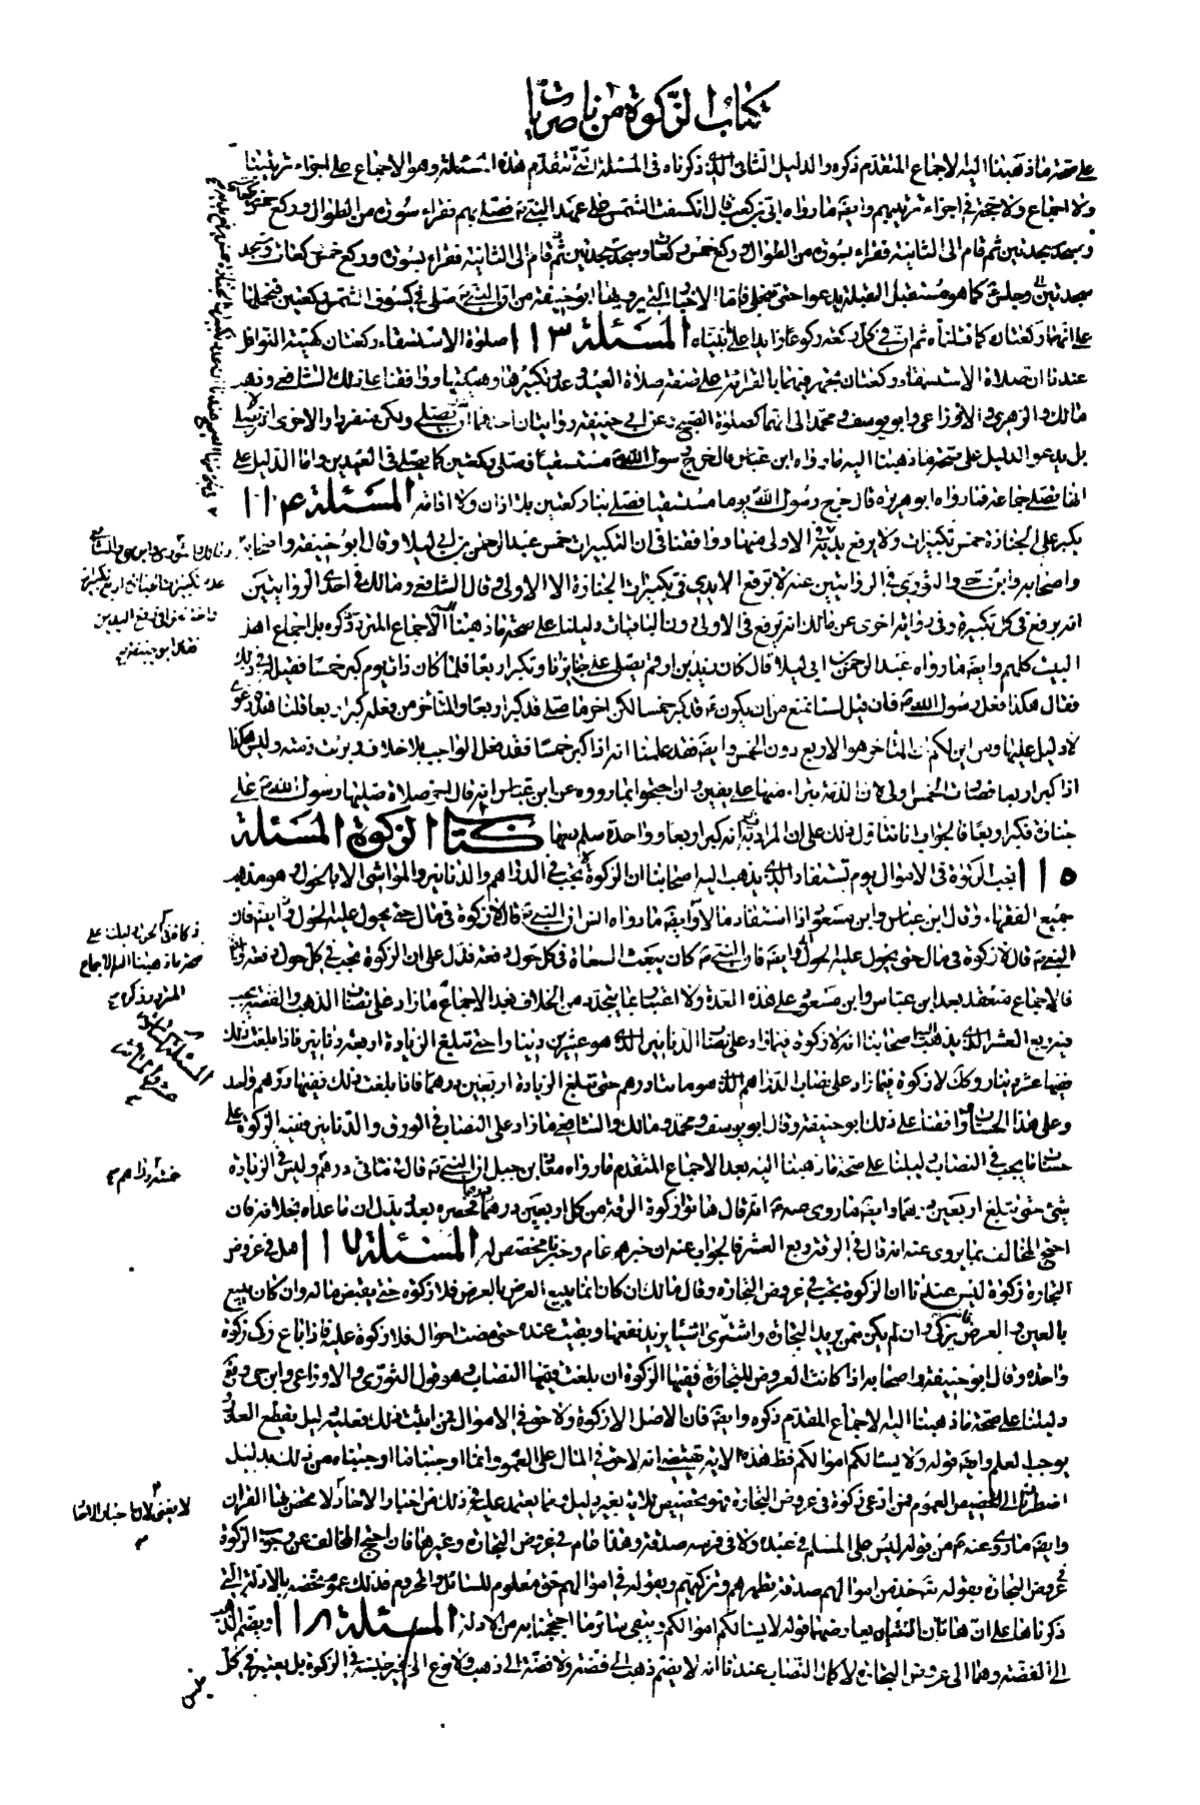 كتاب الزكوة من ناصريات
على صحة ما ذهبنا اليه الاجماع المتقدم ذكره والدليل الثانى الذى ذكرناه فى المسئلة التى تتقدم هذه المسئلة وهو الاجماع على اجزاء ترتيبنا
ولا اجماع ولا حجة فى اجزاء ترتيبهم وايضا ما رواه ابى بن كعب قال انكسفت الشمس على عهد النبى فصلى بهم فقراء سورة من الطوال وركع خمس ركعات
وسجد سجدتين ثم قام الى الثانية فقراء بسورة من الطوال وركع خمس ركعات وسجد سجدتين ثم قام الى الثانية فقراء بسورة وركع خمس ركعات وسجد
سجدتين وجلس كما هو مستقبل القبلة يدعوا حتى تنجلى فاما الاخبار التى يرويها ابو حنيفة من ان النبى صلى فى كسوف الشمس ركعتين فيحملها
على انهما ركعتان كما قلناه ثم ان فى كل ركعة ركوعا زايدا على ما بيناه المسئلة ١١٣ صلوة الاستسقاء ركعتان كهيئة النوافل
عندنا ان صلاة الاستسقاء ركعتان يجهر فيهما بالقراءة على صفة صلاة العيد وعدد تكبيرها وهيئتها ووافقنا على ذلك الشافعى وذهب
مالك والزهرى والاوزاعى وابو يوسف ومحمد الى انهما كصلوة الصبح وعن ابى حنيفة روايتان احدهما ان يصلى ولكن منفردا والاخرى انه لا يصلى
بل يدعو الدليل على صحة ما ذهبنا اليه ما رواه ابن عباس قال خرج رسول الله مستسقيا فصلى ركعتين كما يصلى فى العيدين واما الدليل على
انها تصلى جماعة فما رواه ابو هريرة قال خرج رسول الله يوما مستسقيا فصلى بنا ركعتين بلا اذان ولا اقامة المسئلة ١١٤
يكبر على الجنازة خمس تكبيرات ولا يرفع يديه الا فى الاولى منها ووافقنا فى ان التكبيرات خمس عبد الرحمن بن ابى ليلا وقال ابو حنيفة واصحابه
واصحابه وابن والثورى فى الروايتين عنه لا ترفع الايدى فى تكبيرات الجنازة الا الاولى وقال الشافعى ومالك فى احدى الروايتين
انه يرفع فى كل تكبيرة وفى رواية اخرى عن مالك انه ترفع فى الاولى دون الباقيات دليلنا على صحة ما ذهبنا الاجماع المتردد ذكره بل اجماع اهل
البيت كلهم وايضا ما رواه عبد الرحمن بن ابى ليلا قال كان زيد بن ارقم يصلى على جنايزنا ويكبر اربعا فلما كان ذات يوم كبر خمسا فقيل له فى ذلك
فقال هكذا فعل رسول الله فان قيل لسنا نمنع من ان يكون قد كبر خمسا لكن اخر ما صلى قد كبر اربعا والمتأخر من فعله كبر اربعا قلنا هذه دعوى
لا دليل عليها ومن اين لكم ان المتاخر هو الاربع دون الخمس وايضا فقد علمنا انه اذا كبر خمسا فقد فعل الواجب بلا خلاف وبرئت ذمته وليس هكذا
اذا كبر اربعا فصارت الخمس اولى لان الذمة تبراء منها على يقين وان احتجوا بما رووه عن ابن عباس انه قال اخر صلاة صليها رسول الله على
جنازة فكبر اربعا فالجواب اننا نتاول ذلك على ان المراد به انه كبر اربعا وواحدة سلم بعدها كتاب الزكوة المسئلة
١١٥ تجب الزكوة فى الاموال يوم تستفاد الذى يذهب اليه اصحابنا ان الزكوة لا تجب فى الدراهم والدنانير والمواشى الا بالحول وهو مذهب
جميع الفقهاء وقال ابن عباس وابن مسعود اذا استفاد مالا وايضا ما رواه انس ان النبى قال لا زكوة فى مال حتى يحول عليه الحول وايضا فان
النبى قال لا زكوة فى مال حتى يحول عليه الحول وايضا فان النبى كان يبعث السعاة فى كل حول دفعة فدل على ان الزكوة تجب فى كل حول دفعة وايضا
فالاجماع منعقد بعد ابن عباس وابن مسعود على هذه المدة ولا اعتبار بما يتجدد من الخلاف بعد الاجماع ما زاد على نصاب الذهب والفضة يجب
فيه ربع العشر الذى يذهب اليه اصحابنا انه لا زكوة فيما زاد على نصاب الدنانير الذى هو عشرين دينارا حتى تبلغ الزيادة اربعة دنانير فاذا بلغت ذلك
ففيها عشر دينار وكذلك لا زكوة فيما زاد على نصاب الدراهم الذى هو مائتا درهم حتى تبلغ الزيادة اربعين درهما فاذا بلغت ذلك ففيها درهم واحد
وعلى هذا الحساب ووافقنا على ذلك ابو حنيفة وقال ابو يوسف ومحمد ومالك والشافعى ما زاد على النصاب فى الورق والدنانير ففيه الزكوة على
حساب ما يجب فى النصاب دليلنا على صحة ما ذهبنا اليه بعد الاجماع المتقدم ما رواه معاذ بن جبل ان النبى قال فى مائتى درهم وليس فى الزيادة
شئ حتى تبلغ اربعين درهما وايضا ما روى عنه انه قال هاتوا زكوة الرقة من كل اربعين درهما فحصره بعدد يدل ان ما عداه بخلافه فان
احتج المخالف بما يروى عنه انه قال فى الرقة ربع العشر فالجواب عنه ان خبرهم عام وخبرنا مختص له المسئلة ١١٧ هل فى عروض
التجارة زكوة ليس عندنا ان الزكوة تجب فى عروض التجارة وقال مالك ان كان انما يبيع العرض بالعرض فلا زكوة حتى يقبض ماله وان كان يبيع
بالعين والعرض يزكى وان لم يكن ممن يريد التجارة واشترى اشياء يريد نفعها وبقيت عنده حتى مضت احوال فلا زكوة عليه فاذا باع زكى زكوة
واحدة وقال ابو حنيفة واصحابه اذا كانت العروض للتجارة ففيها الزكوة ان بلغت قيمتها النصاب وهو قول الثورى والاوزاعى وابن حى
دليلنا على صحة ما ذهبنا اليه الاجماع المتقدم ذكره وايضا فان الاصل الا زكوة ولا حق فى الاموال فمن اثبت ذلك فعليه دليل يقطع العذر
يوجب العلم وايضا قوله ولا يسئلكم اموالكم فظ هذه الاية تقتضى انه لاحق فى المال على العموم وانما اوجبنا ما اوجبناه من ذلك بدليل
اضطرنا الى تخصيص العموم فمن ادعى زكوة فى عروض التجارة فهو تخصيص للاية بغير دليل فما يعتمد عليه فى ذلك من اخبار الاحاد لا يخص بها القران
وايضا ما روى عنه من قوله ليس على المسلم فى عبده ولا فى فرسه صدقة وهذا عام فى عروض التجارة وغيرها فان احتج المخالف عن وجوب الزكوة
فى عروض التجارة بقوله خذ من اموالهم صدقة تطهرهم وتزكيهم وبقوله فى اموالهم حق معلوم للسائل والمحروم فذلك عموم نخصه بالادلة التى
ذكرناها على ان هاتان الايتان يعارضهما قوله لا يسئلكم اموالكم ويبقى ما احتججنا به من الادلة المسئلة ١١٨ ويضم الذهب
الى الفضة وهما الى عروض التجارة لاكمال النصاب عندنا انه لا يضم ذهب الى فضة ولا فضة الى ذهب ولا نوع الى غير جنسه فى الزكوة بل يعتبر فى كل
زكاة فى الحول دليلنا على
صحة ما ذهبنا اليه الاجماع
المتردد ذكره
خمسة دراهم
لا يغنى لان اخبار الاحاد
جنس